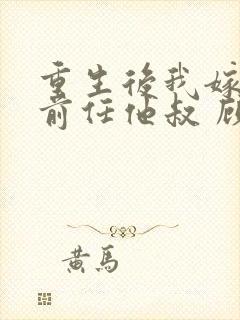 重生後我嫁
前任他叔 顧
黃馬